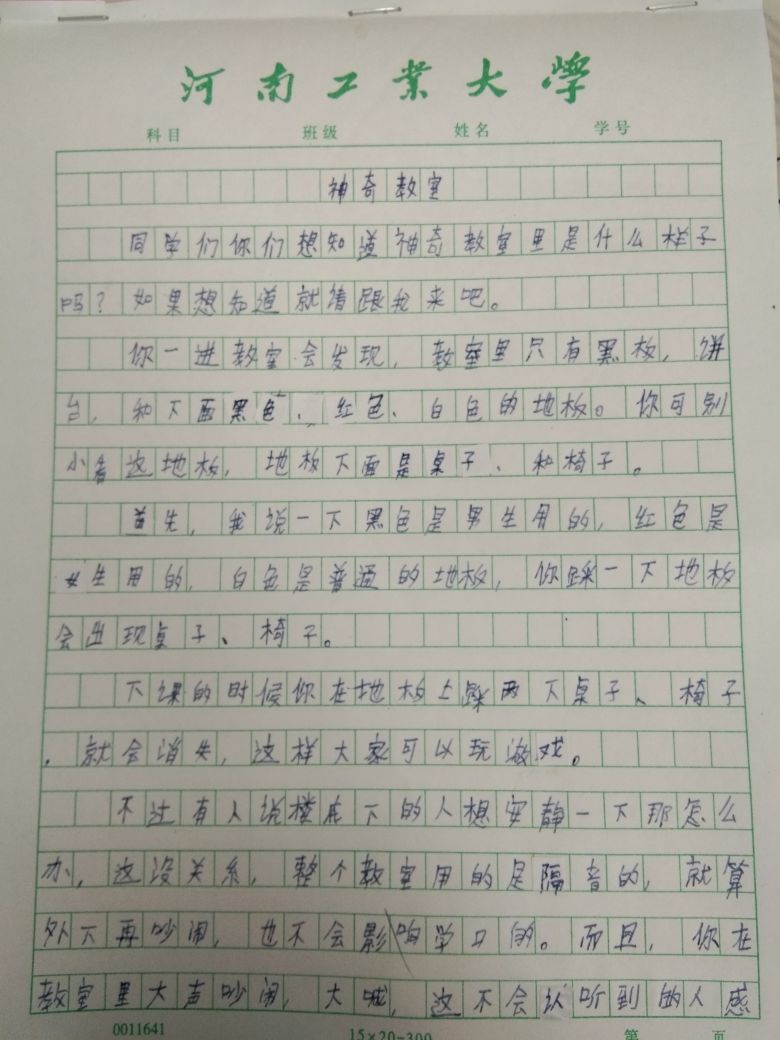 河南工业大学
科目 班级 姓名 学号
神奇教室
同学们你们想知道神奇教室里是什么样子
吗？如果想知道就请跟我来吧。
你一进教室会发现，教室里只有黑板，讲
台，和下面黑色、红色、白色的地板。你可别
小看这地板，地板下面是桌子、和椅子。
首先，我说一下黑色是男生用的，红色是
女生用的，白色是普通的地板，你踩一下地板
会出现桌子、椅子。
下课的时候你在地板上踩两下桌子、椅子
，就会消失，这样大家可以玩游戏。
不过有人说楼底下的人想安静一下那怎么
办，这没关系，整个教室用的是隔音的，就算
外下再吵闹，也不会影响学习的。而且，你在
教室里大声吵闹，大喊，这不会认听到的人感
0011641 15×20=300 第 页